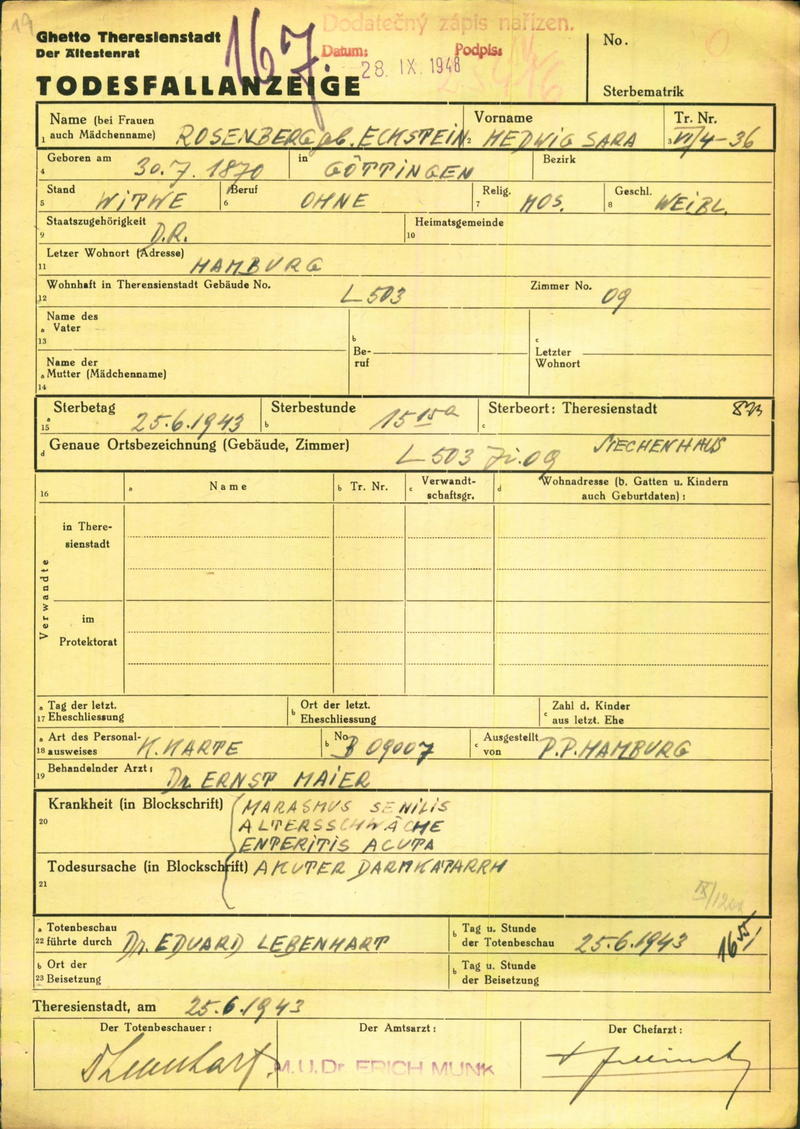 19
Ghetto Theresienstadt
Der Ältestenrat
167.
Dodatečný zápis nařízen.
Datum: 28 IX. 1948 Podpis:
TODESFALLANZEIGE
No.
Sterbematrik
Name (bei Frauen auch Mädchenname) ROSENBERG geb. ECKSTEIN
Vorname HEDWIG SARA
Tr. Nr. VI/4-36
Geboren am 30.7.1870 in GÖTTINGEN Bezirk
Stand WITWE Beruf OHNE Relig. MOS. Geschl. WEIBL.
Staatszugehörigkeit D.R. Heimatsgemeinde
Letzer Wohnort (Adresse) HAMBURG
Wohnhaft in Therensienstadt Gebäude No. L 503 Zimmer No. 09
Name des Vater
Be-ruf
Letzter Wohnort
Name der Mutter (Mädchenname)
Sterbetag 25.6.1943 Sterbestunde 15 15 Sterbeort: Theresienstadt
Genaue Ortsbezeichnung (Gebäude, Zimmer) L 503 Zi. 09 SIECHENHAUS
16 a Name b Tr. Nr. c Verwandt-schaftsgr. d Wohnadresse (b. Gatten u. Kindern auch Geburtdaten):
Verwandte
in There-
sienstadt
im
Protektorat
Tag der letzt. Eheschliessung
Ort der letzt. Eheschliessung
Zahl d. Kinder aus letzt. Ehe
Art des Personal-ausweises K. KARTE No B 09007 Ausgestellt von P.P. HAMBURG
Behandelnder Arzt: Dr. ERNST MAIER
Krankheit (in Blockschrift) MARASMUS SENILIS
ALTERSSCHWÄCHE
ENTERITIS ACUTA
Todesursache (in Blockschrift) AKUTER DARMKATARRH
Totenbeschau führte durch Dr. EDUARD LEBENHART
Tag u. Stunde der Totenbeschau 25.6.1943
Ort der Beisetzung
Tag u. Stunde der Beisetzung
Theresienstadt, am 25.6.1943
Der Totenbeschauer: Der Amtsarzt: Der Chefarzt:
M.U.Dr. ERICH MUNK